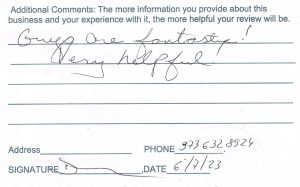 Additional Comments: The more information you provide about this
business and your experience with it, the more helpful your review will be.
Guys are fantastic!
Very helpful
Address PHONE 973 632 8924
SIGNATURE DATE 6/7/23